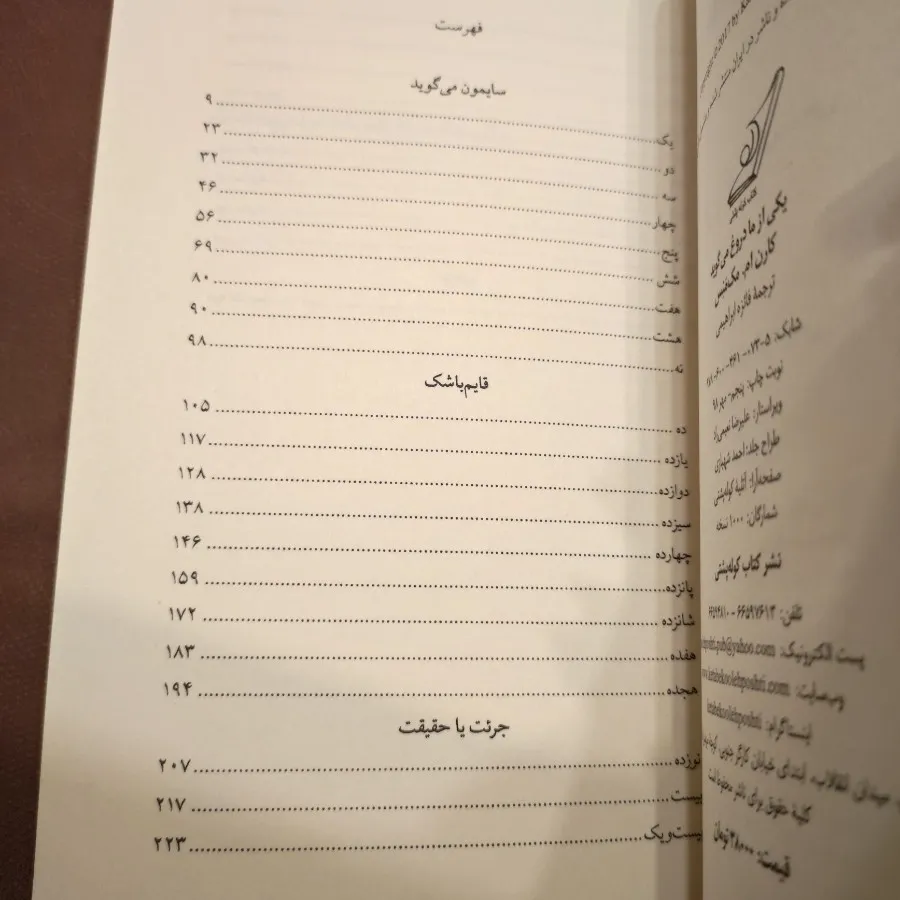 فهرست
سایمون می‌گوید
یک ........ ۹
دو ........ ۲۳
سه ........ ۳۲
چهار ........ ۴۶
پنج ........ ۵۶
شش ........ ۶۹
هفت ........ ۸۰
هشت ........ ۹۰
نه ........ ۹۸
قایم‌باشک
ده ........ ۱۰۵
یازده ........ ۱۱۷
دوازده ........ ۱۲۸
سیزده ........ ۱۳۸
چهارده ........ ۱۴۶
پانزده ........ ۱۵۹
شانزده ........ ۱۷۲
هفده ........ ۱۸۳
هجده ........ ۱۹۴
جرئت یا حقیقت
نوزده ........ ۲۰۷
بیست ........ ۲۱۷
بیست‌ویک ........ ۲۲۳
2017 by
و ناشر در ایران منتشر
کتاب کوله پشتی
یکی از ما دروغ می‌گوید
کارن ام. مک‌منس
ترجمه فائزه ابراهیمی
شابک: ۵-۰۷۳-۴۶۱-۶۰۰-
نوبت چاپ: پنجم- مهر ۹۸
ویراستار: علیرضا
طراح جلد: احمد شهبازی
صفحه‌آرا: آتلیه کوله‌پشتی
شمارگان: ۱۰۰۰ نسخه
نشر کتاب کوله‌پشتی
تلفن: ۶۶۵۹۷۶۱۳ -
پست الکترونیک: @yahoo.com
وب‌سایت: koolehposhti.com
اینستاگرام: koolehposhti
میدان انقلاب، ابتدای خیابان کارگر جنوبی،
کلیهٔ حقوق برای ناشر محفوظ است
قیمت: ۳۸۰۰۰ تومان